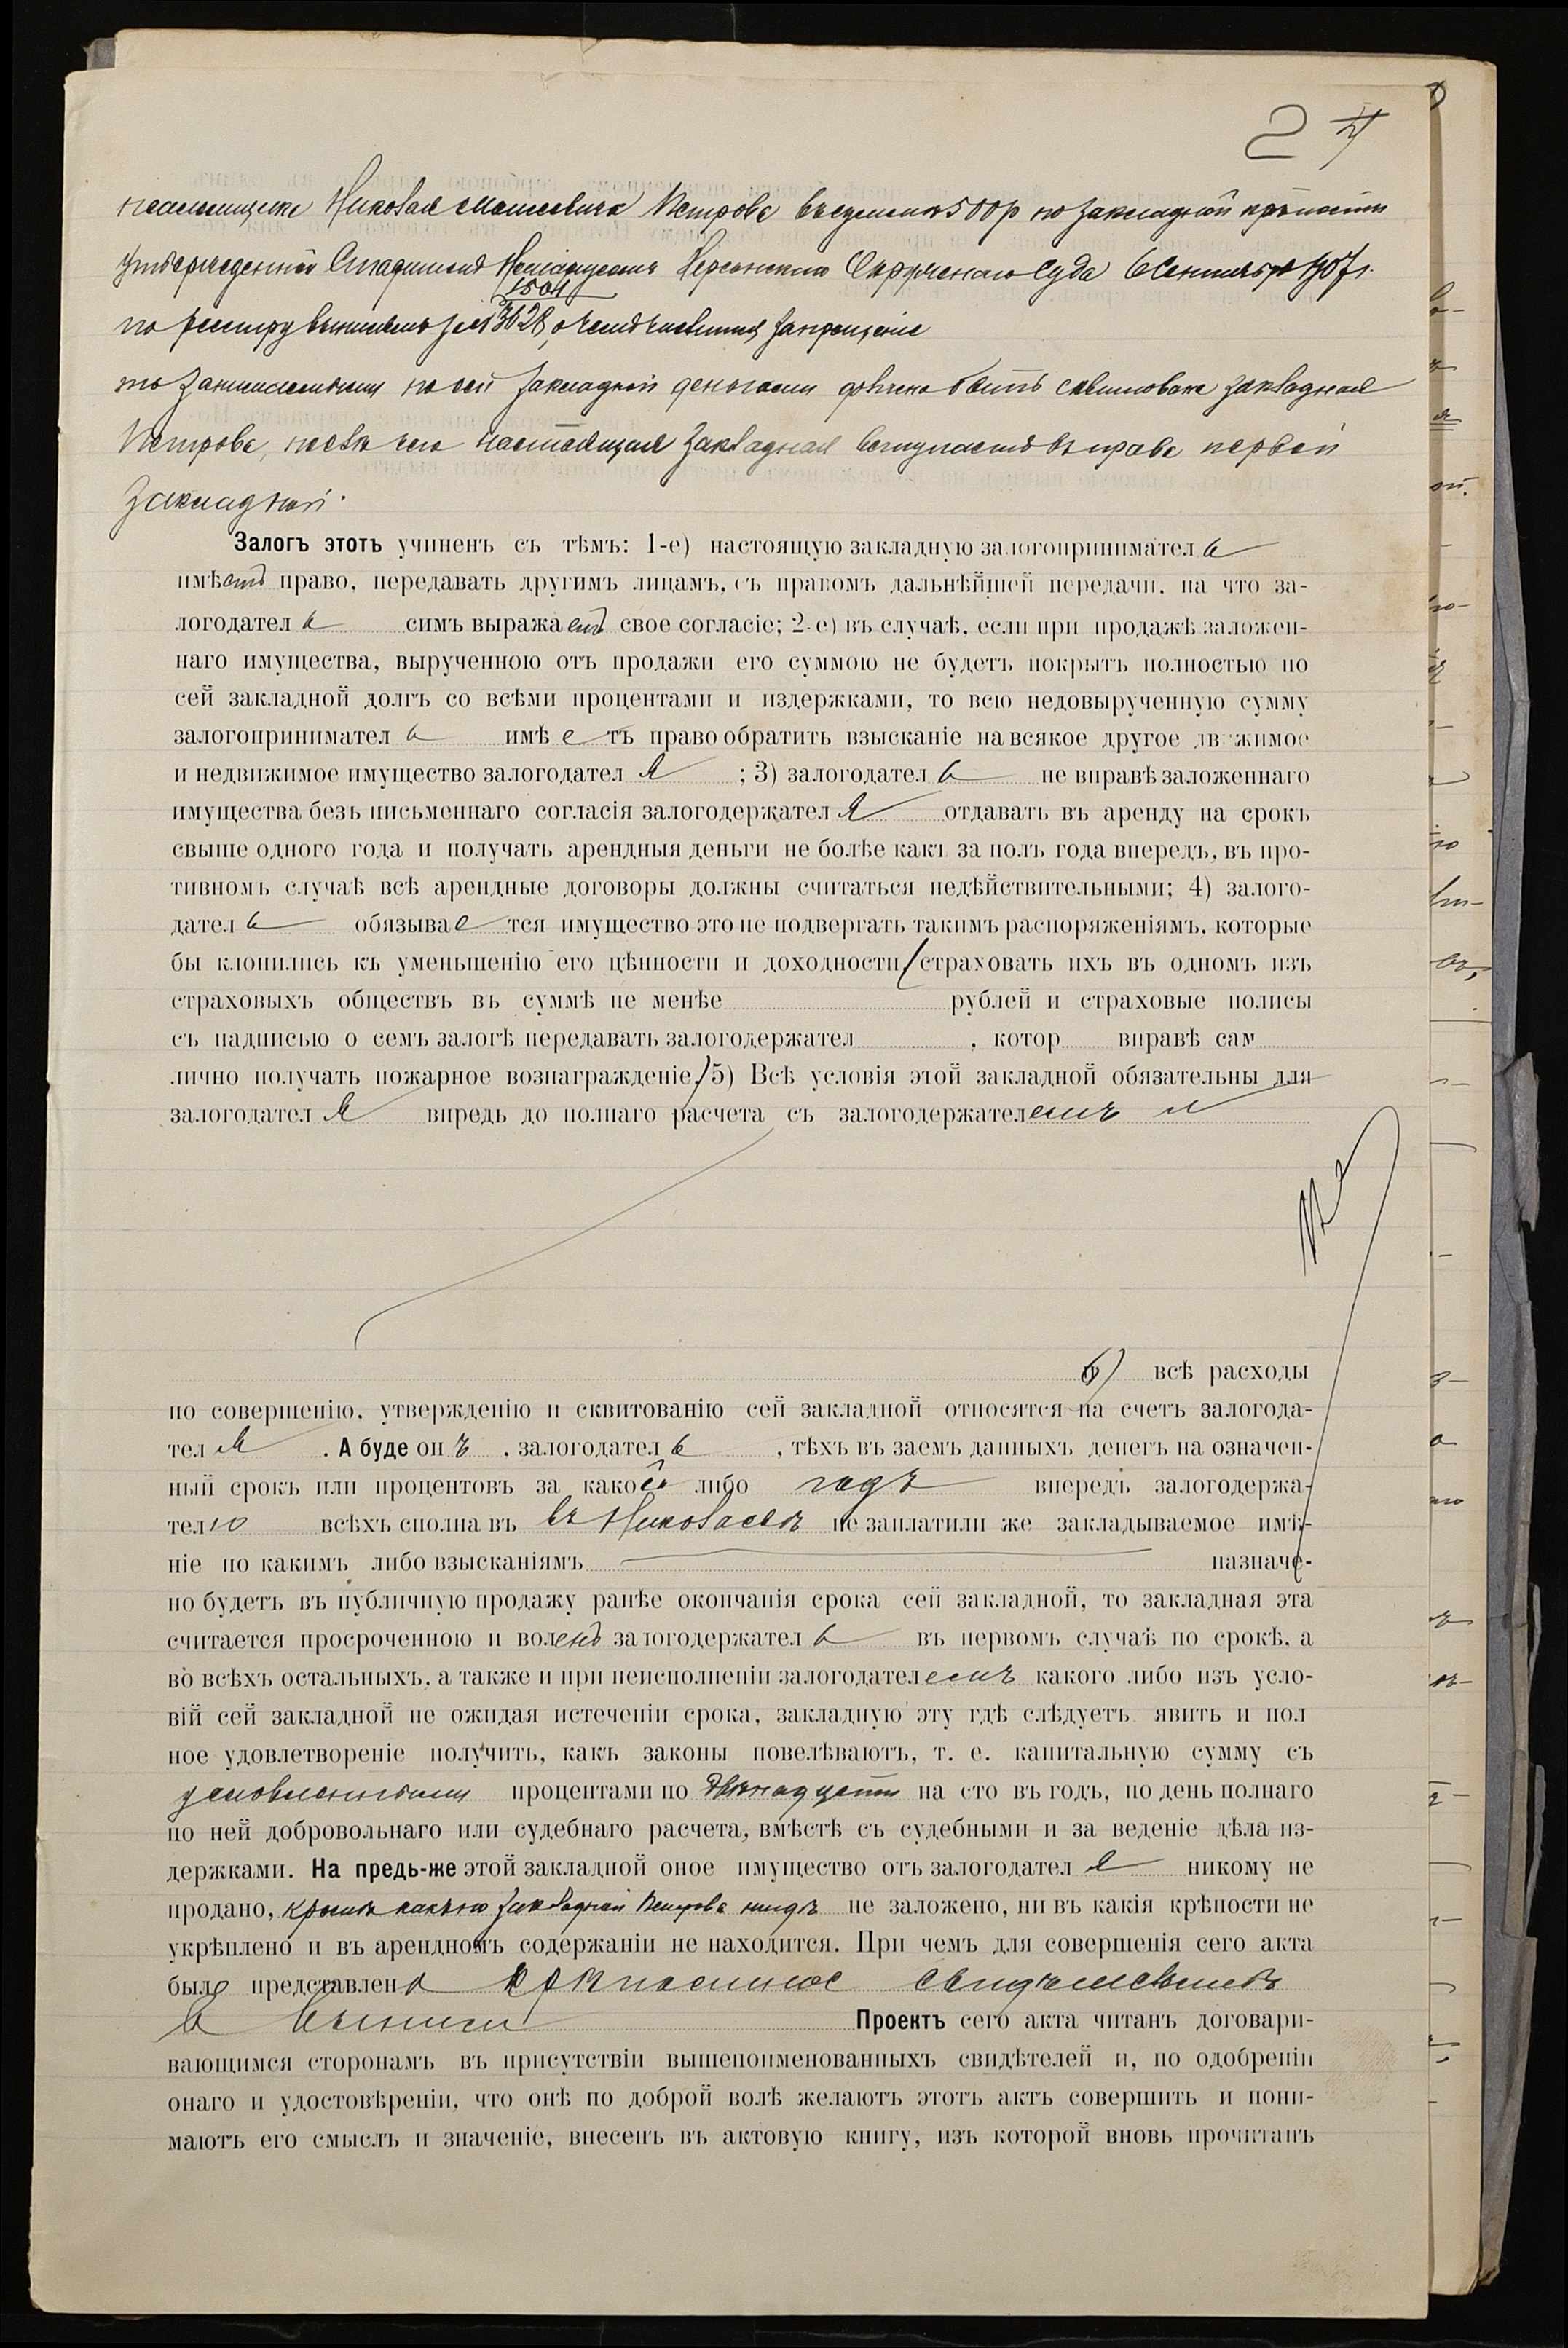 2
Николая Моисеевича Петрова въ суммѣ 500 р по закладной крѣпости
утвержденной Старшимъ Нотаріусомъ Херсонскаго Окружнаго Суда 6 Сентября 1907 г.
1504
по реестру 3028, запрещеніе
то занимаемыми по сей закладной деньгами должна быть сквитована закладная
Петрова, послѣ чего настоящая закладная вступаетъ въ права первой
закладной.
Залогъ этотъ учиненъ съ тѣмъ: 1-е) настоящую закладную залогоприниматель
имѣетъ право, передавать другимъ лицамъ, съ правомъ дальнѣйшей передачи, на что за-
логодатель симъ выражаетъ свое согласіе; 2-е) въ случаѣ, если при продажѣ заложен-
наго имущества, вырученною отъ продажи его суммою не будетъ покрытъ полностью по
сей закладной долгъ со всѣми процентами и издержками, то всю недовырученную сумму
залогоприниматель имѣетъ право обратить взысканіе на всякое другое движимое
и недвижимое имущество залогодателя ; 3) залогодатель не вправѣ заложеннаго
имущества безъ письменнаго согласія залогодержателя отдавать въ аренду на срокъ
свыше одного года и получать арендныя деньги не болѣе какъ за полъ года впередъ, въ про-
тивномъ случаѣ всѣ арендные договоры должны считаться недѣйствительными; 4) залого-
датель обязывается имущество это не подвергать такимъ распоряженіямъ, которые
бы клонились къ уменьшенію его цѣнности и доходности (страховать ихъ въ одномъ изъ
страховыхъ обществъ въ суммѣ не менѣе рублей и страховые полисы
съ надписью о семъ залогѣ передавать залогодержател , котор вправѣ сам
лично получать пожарное вознагражденіе.) 5) Всѣ условія этой закладной обязательны для
залогодателя впредь до полнаго расчета съ залогодержателемъ и
6) всѣ расходы
по совершенію, утвержденію и сквитованію сей закладной относятся на счетъ залогода-
теля . А буде онъ , залогодатель , тѣхъ въ заемъ данныхъ денегъ на означен-
ный срокъ или процентовъ за какой либо годъ впередъ залогодержа-
телю всѣхъ сполна въ въ Николаевѣ не заплатили же закладываемое имѣ-
ніе по какимъ либо взысканіямъ назначе-
но будетъ въ публичную продажу ранѣе окончанія срока сей закладной, то закладная эта
считается просроченною и воленъ залогодержатель въ первомъ случаѣ по срокѣ, а
во всѣхъ остальныхъ, а также и при неисполненіи залогодателемъ какого либо изъ усло-
вій сей закладной не ожидая истеченіи срока, закладную эту гдѣ слѣдуетъ явить и пол
ное удовлетвореніе получить, какъ законы повелѣваютъ, т. е. капитальную сумму съ
условленными процентами по двѣнадцати на сто въ годъ, по день полнаго
по ней добровольнаго или судебнаго расчета, вмѣстѣ съ судебными и за веденіе дѣла из-
держками. На предь-же этой закладной оное имущество отъ залогодателя никому не
продано, кромѣ какъ по закладной Петрова нигдѣ не заложено, ни въ какія крѣпости не
укрѣплено и въ арендномъ содержаніи не находится. При чемъ для совершенія сего акта
было представлено крѣпостное
Проектъ сего акта читанъ договари-
вающимся сторонамъ въ присутствіи вышепоименованныхъ свидѣтелей и, по одобреніи
онаго и удостовѣреніи, что онѣ по доброй волѣ желаютъ этотъ актъ совершить и пони-
маютъ его смыслъ и значеніе, внесенъ въ актовую книгу, изъ которой вновь прочитанъ